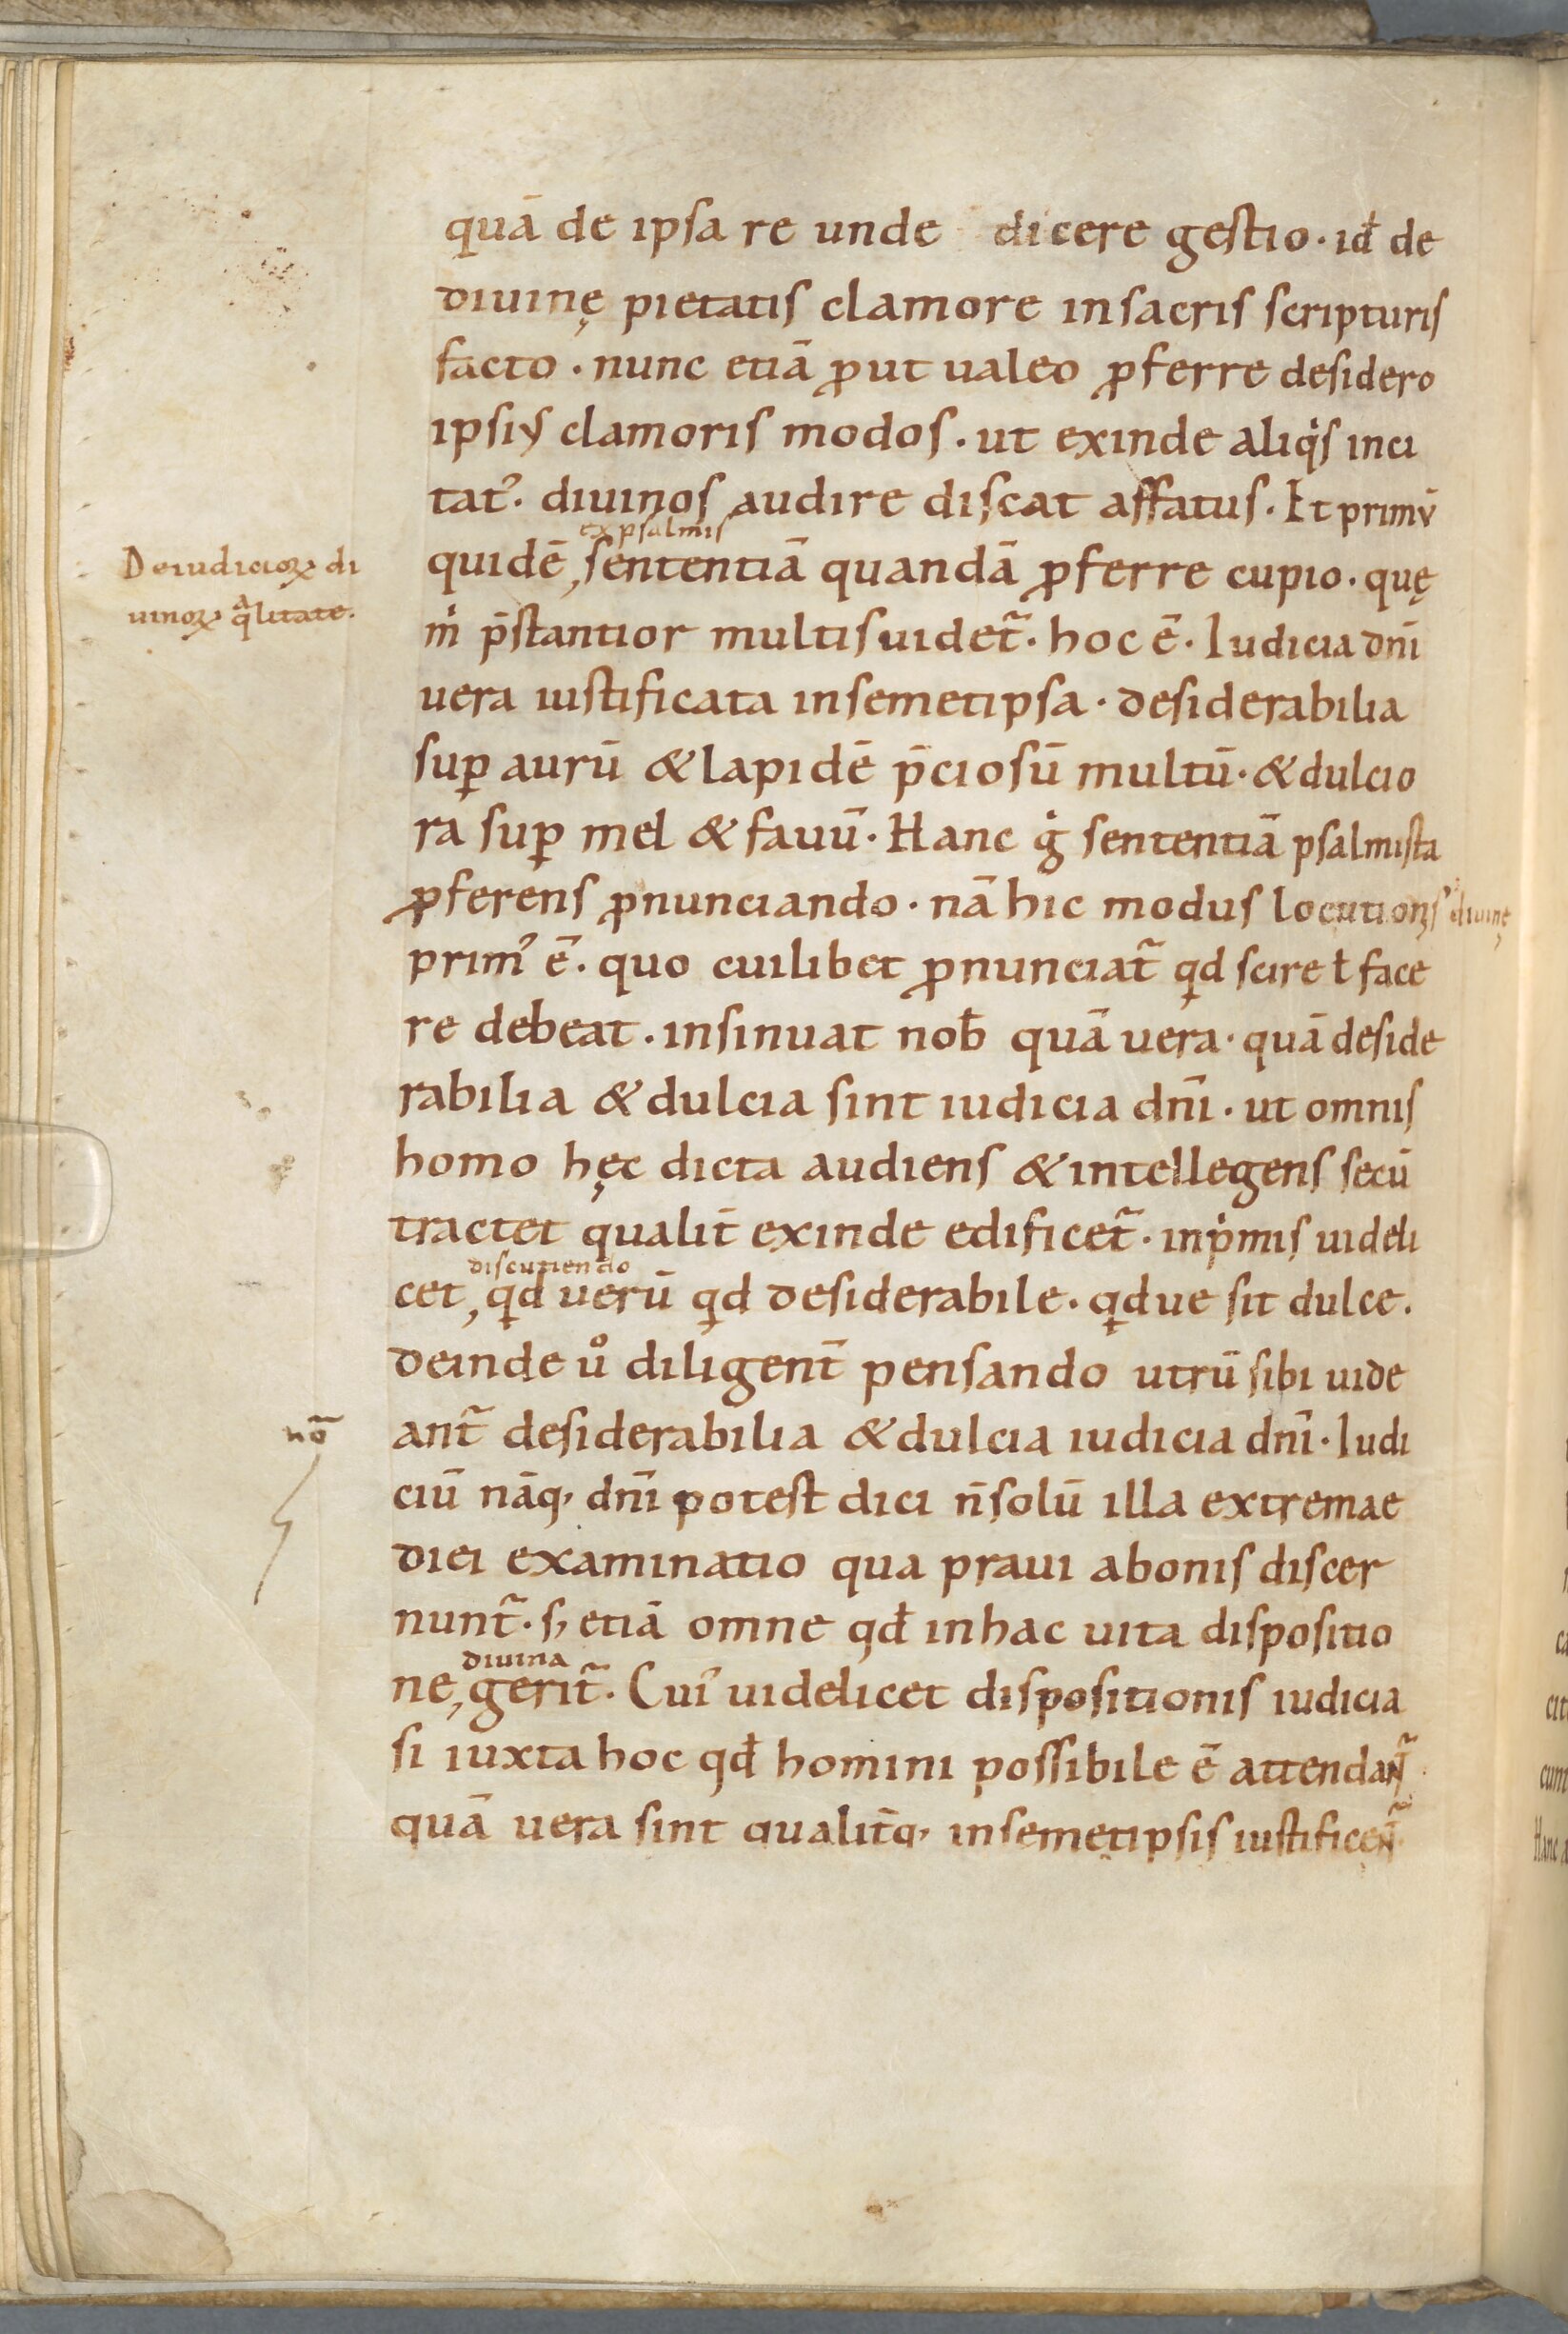 quā de ipsa re unde dicere gestio · id̄ de
diuinę pietatis clamore insacris scripturis
facto · nunc etiā ꝓut ualeo ꝓferre desidero
ipsiꝰ clamoris modos · ut exinde aliqͥs inci
tatꝰ · diuinos audire discat affatus · Et primū
ex psalmis
De iudicioꝝ di
uinoꝝ qͣlitate.
quidē, sententiā quandā ꝓferre cupio · quę
mͥ p̄stantior multis uidet̄ · hoc ē · Iudicia dn̄i
uera iustificata insemetipsa · desiderabilia
suꝑ aurū & lapidē p̄ciosū multū · & dulcio
ra suꝑ mel & fauū · Hanc gͥ sententiā psalmista
ꝓferens ꝓnunciando · nā hic modus locutionis diuinę
primꝰ ē · quo cuilibet ꝓnunciat̄ qd scire ł face
re debeat · insinuat nob̄ quā uera · quā deside
rabilia & dulcia sint iudicia dn̄i · ut omnis
homo hęc dicta audiens & intellegens secū
tractet qualit̄ exinde edificet̄ · inpͥmis uideli
discutiendo
cet, qd uerū qd desiderabile · qdue sit dulce.
deinde uͦ diligent̄ pensando utrū sibi uide
nō
ant̄ desiderabilia & dulcia iudicia dn̄i · Iudi
ciū nāq, dn̄i potest dici n̄ solū illa extremae
diei examinatio qua praui abonis discer
nunt̄ · s, etiā omne qd̄ inhac uita dispositio
diuina
ne, gerit̄ · Cuiꝰ uidelicet dispositionis iudicia
si iuxta hoc qd̄ homini possibile ē attendant̄
quā uera sint qualit̄q, insemetipsis iustificent̄